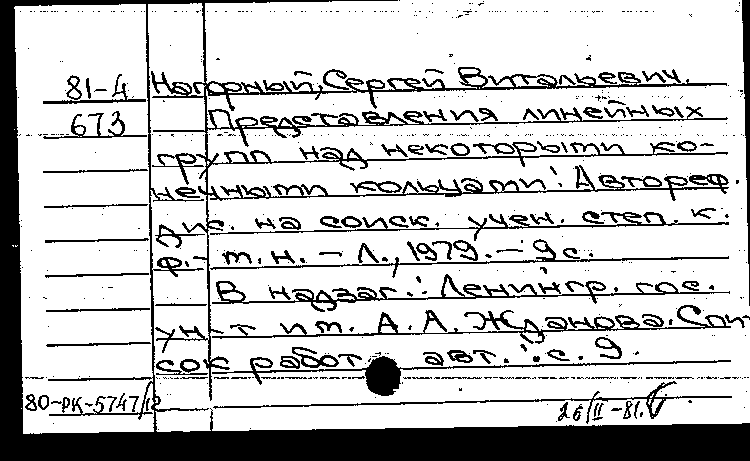 81-4 Нагорный, Сергей Витальевич.
673 Представления линейных
групп над некоторыми ко-
нечными кольцами: Автореф.
дис. на соиск. учен. степ. к.
ф.-м.н. - Л., 1979. - 9 с.
В надзаг.: Ленингр. гос.
ун-т им. А.А. Жданова. Спи-
сок работ авт.: с. 9.
80-РК-5747/12
26/II-81.